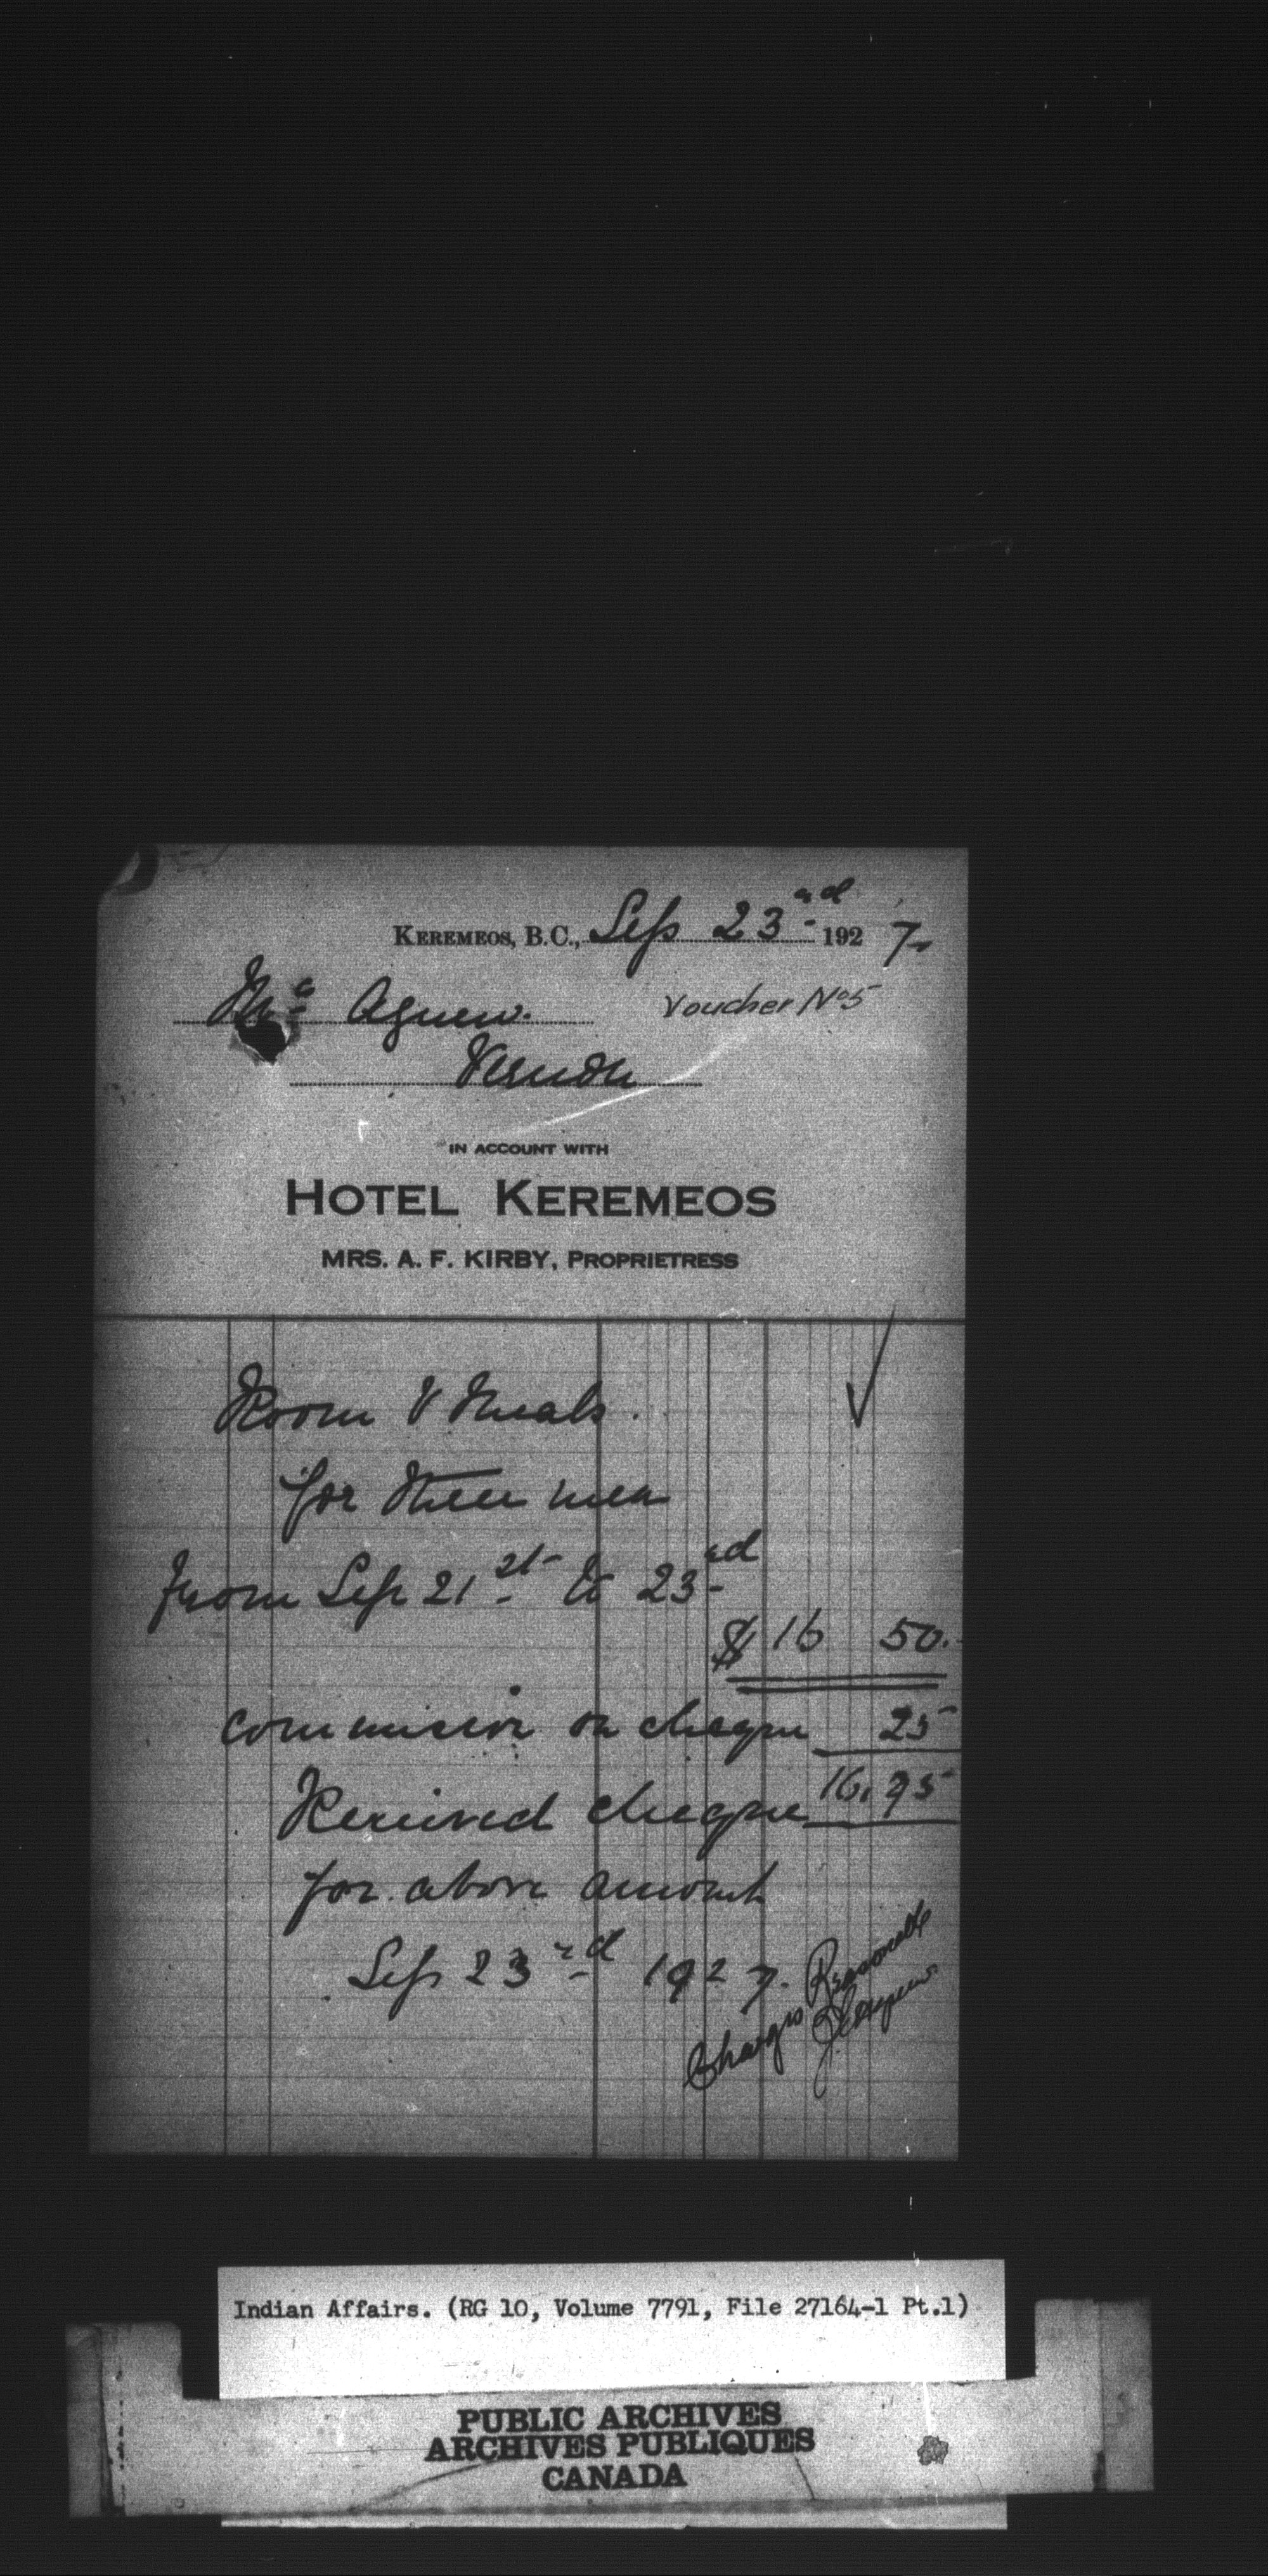 KEREMEOS, B.C., Sep 23rd 1927
Mr Agnew.
Voucher No 5
Vernon
IN ACCOUNT WITH
HOTEL KEREMEOS
MRS. A. F. KIRBY, PROPRIETRESS
Room & Meals.
for three men
from Sep 21st to 23rd
$16 50.
commission on cheque 25
16.75
Received cheque
for above amount
Sep 23rd 1927.
Charges Reasonable
J C Agnew.
Indian Affairs. (RG 10, Volume 7791, File 27164-1 Pt.1)
PUBLIC ARCHIVES
ARCHIVES PUBLIQUES
CANADA